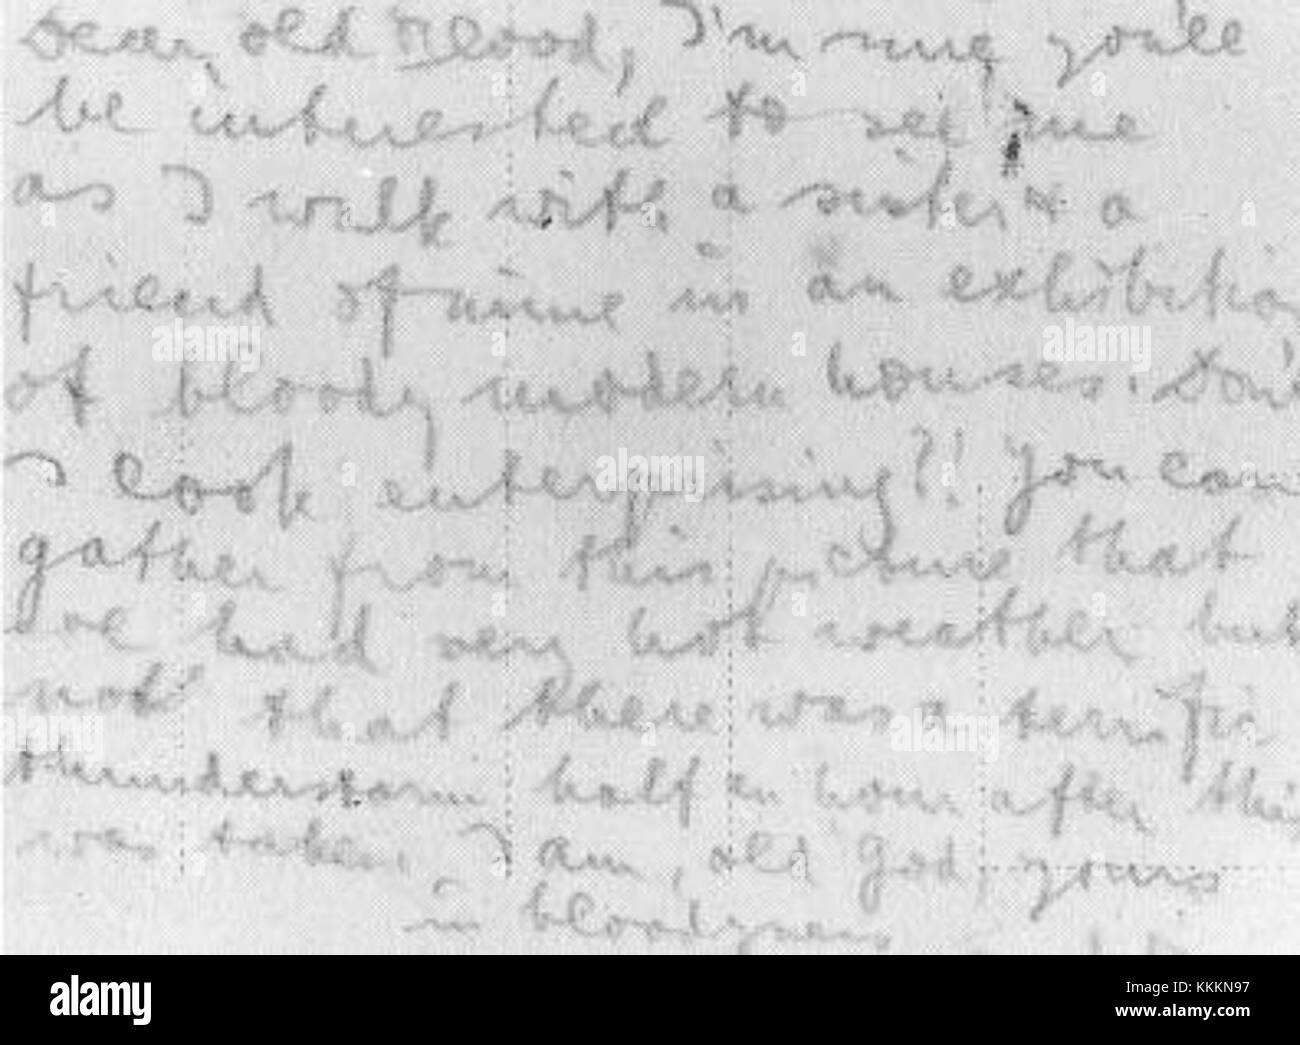 Dear old Blood, I'm sure you'll
be interested to see me
as I walk with a sister & a
friend of mine in an exhibition
of bloody modern houses. Don't
I look enterprising?! You can
gather from this picture that
we had very hot weather but
not that there was a terrific
thunderstorm half an hour after this
was taken. I am, old god, yours
in bloodyness
alamy
alamy
Image ID: KKKN97
www.alamy.com